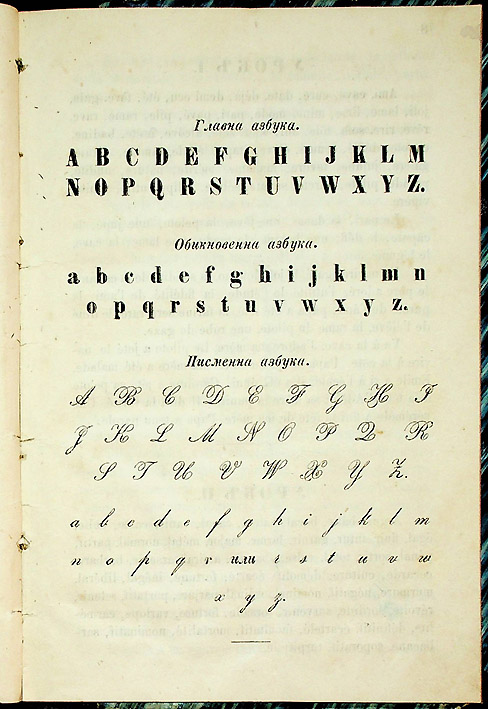 Главна азбука.
A B C D E F G H I J K L M
N O P Q R S T U V W X Y Z.
Обикновенна азбука.
a b c d e f g h i j k l m n
o p q r s t u v w x y z.
Писменна азбука.
A B C D E F G H I
J K L M N O P Q R
S T U V W X Y Z.
a b c d e f g h i j k l m
n o p q r или r s t u v w
x y z.